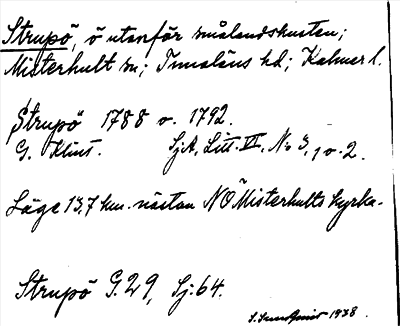 Strupö, ö utanför smålandskusten;
Misterhult sn; Tunaläns hd; Kalmar l.
Strupö 1788 o. 1792.
G. Klint. Sj.A, Litt. VI, No 3, 1 o. 2.
Läge 13,7 km. nästan NO Misterhults kyrka.
Strupö G. 29, Sj: 64.
1938